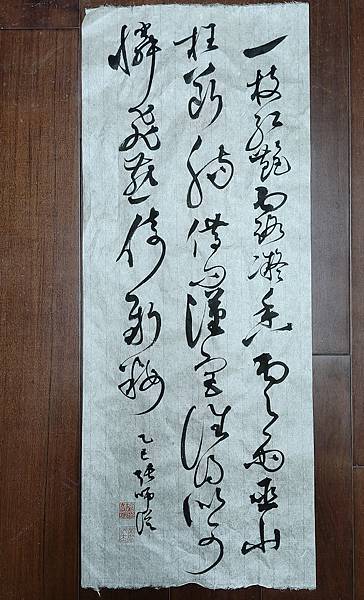 一枝紅艷露凝香雲雨巫山
枉斷腸借問漢宮誰得似可
憐飛燕倚新粧
乙巳張師